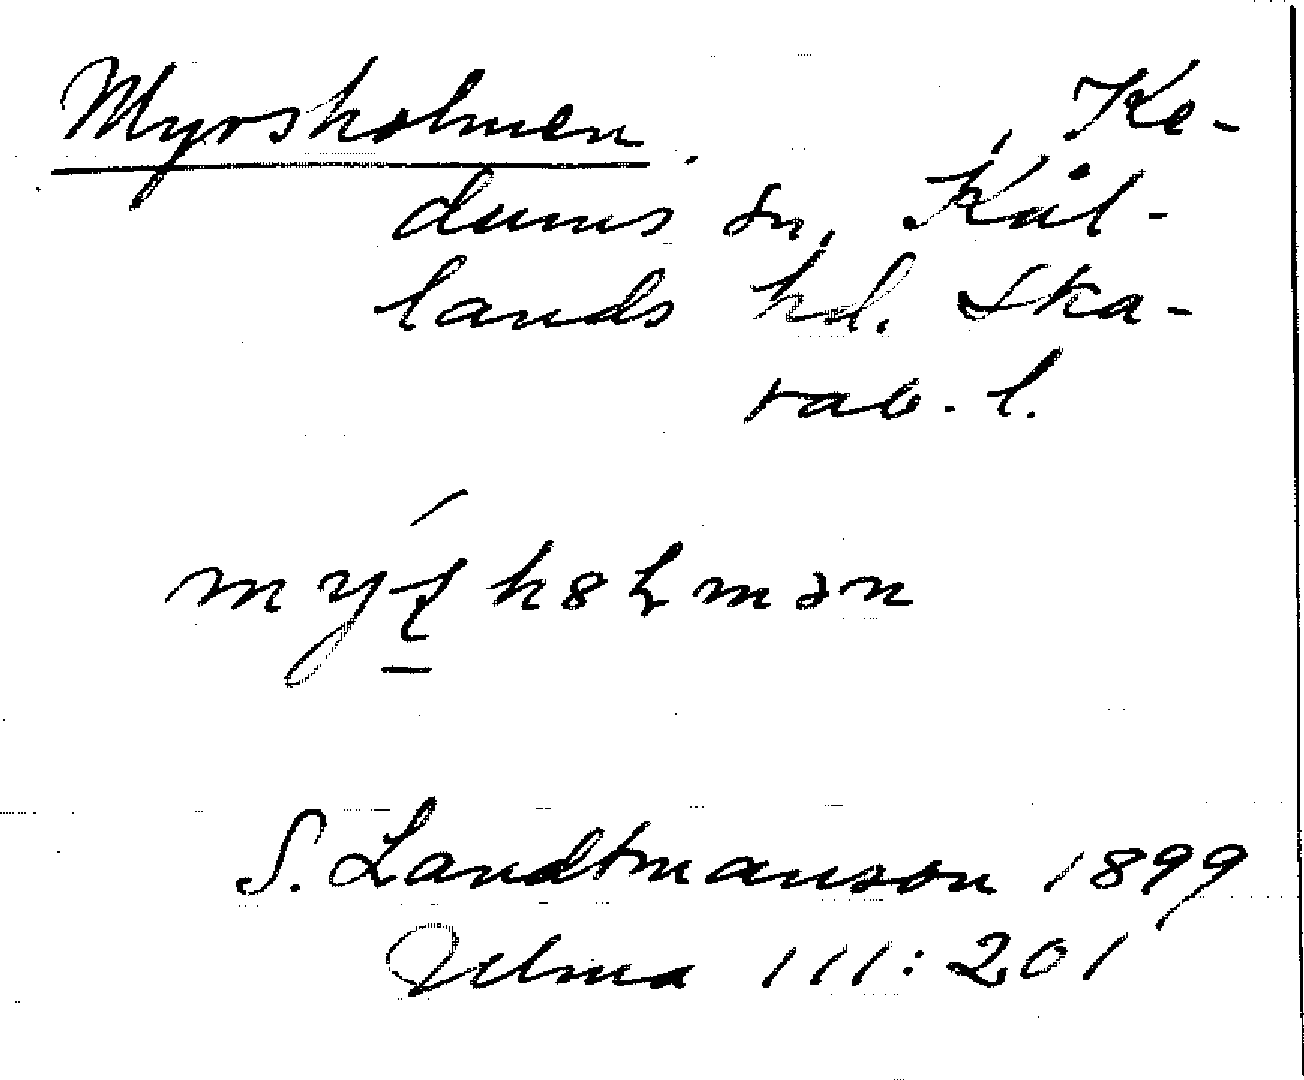 Myrsholmen. , Ke-
dums sn, Kål-
lands hd. Ska-
rab. l.
S. Landtmanson 1899
Ulma 111:201